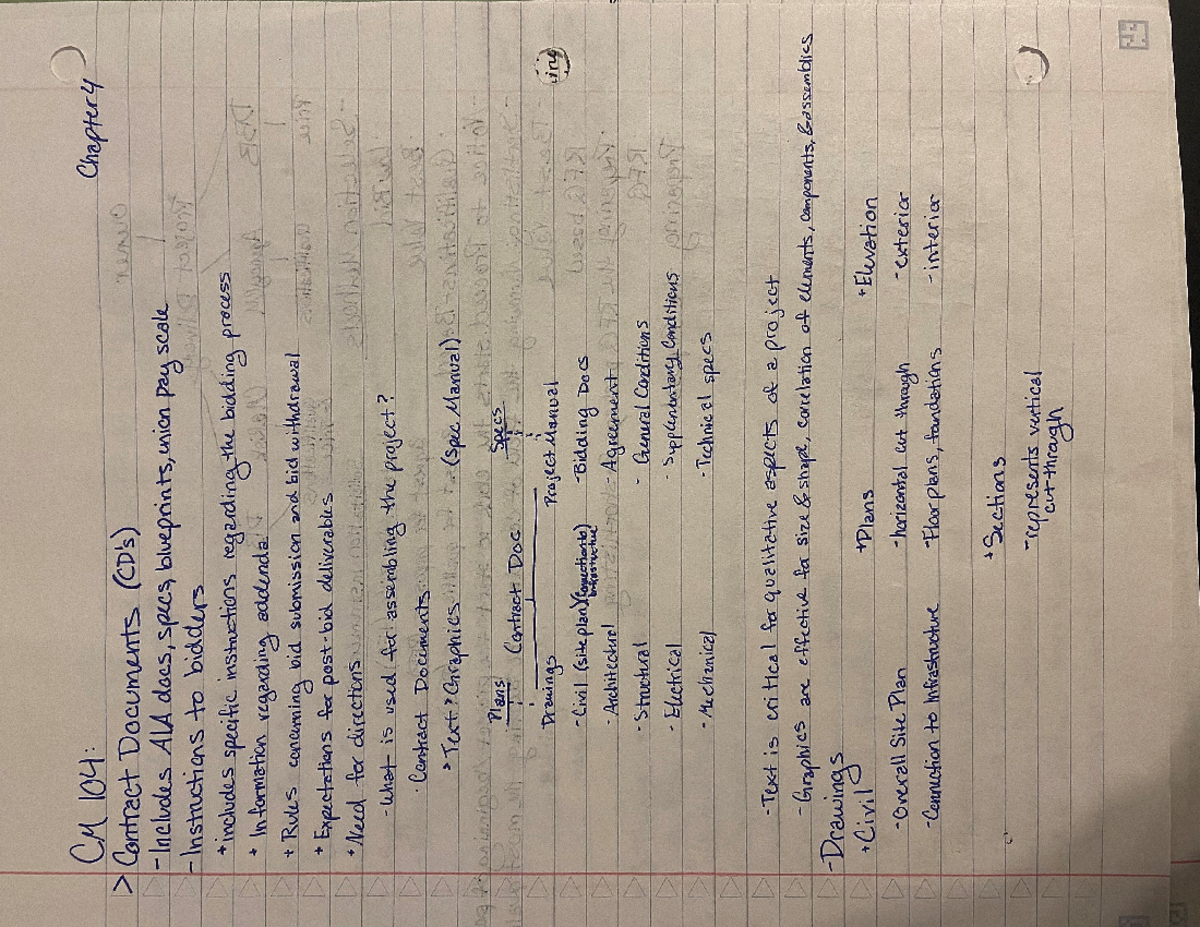 CM 104: Chapter 4
> Contract Documents (CD's)
- Includes AIA docs, specs, blueprints, union pay scale
- Instructions to bidders
+ includes specific instructions regarding the bidding process
+ Information regarding addenda
+ Rules concerning bid submission and bid withdrawal
+ Expectations for post-bid deliverables
+ Need for directions
- What is used for assembling the project?
· Contract Documents
> Text & Graphics (Spec Manual)
Plans Contract Doc Specs
Drawings Project Manual
- Civil (site plan) (connection to infrastructure) - Bidding Docs
- Architectural - Agreement
- Structural - General Conditions
- Electrical - Supplementary Conditions
- Mechanical - Technical specs
- Text is critical for qualitative aspects of a project
- Graphics are effective for size & shape, correlation of elements, components, & assemblies
- Drawings
+ Civil + Plans + Elevation
- Overall Site Plan - horizontal cut through - exterior
- Connection to Infrastructure - Floor plans, foundations - interior
+ Sections
- represents vertical
cut-through